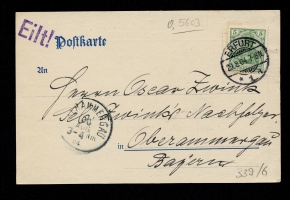 D, 5603
Eilt!
Postkarte
5 5
ERFURT
* 1
An
Herrn Oscar Zwink
Zwink's Nachfolger
in Oberammergau
Bayern
339/6